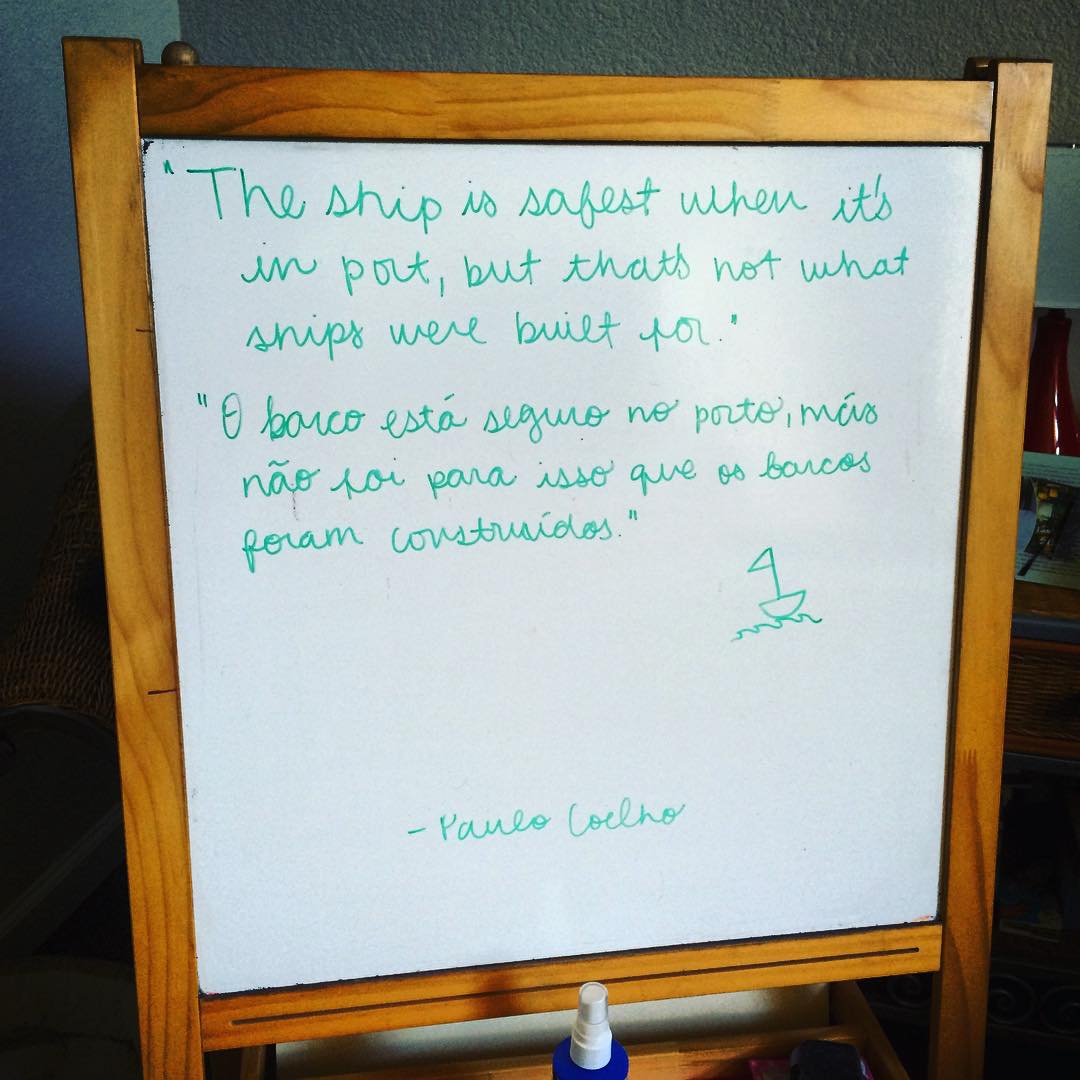 "The ship is safest when it's
in port, but that's not what
ships were built for."
"O barco está seguro no porto, más
não foi para isso que os barcos
foram construídos."
- Paulo Coelho